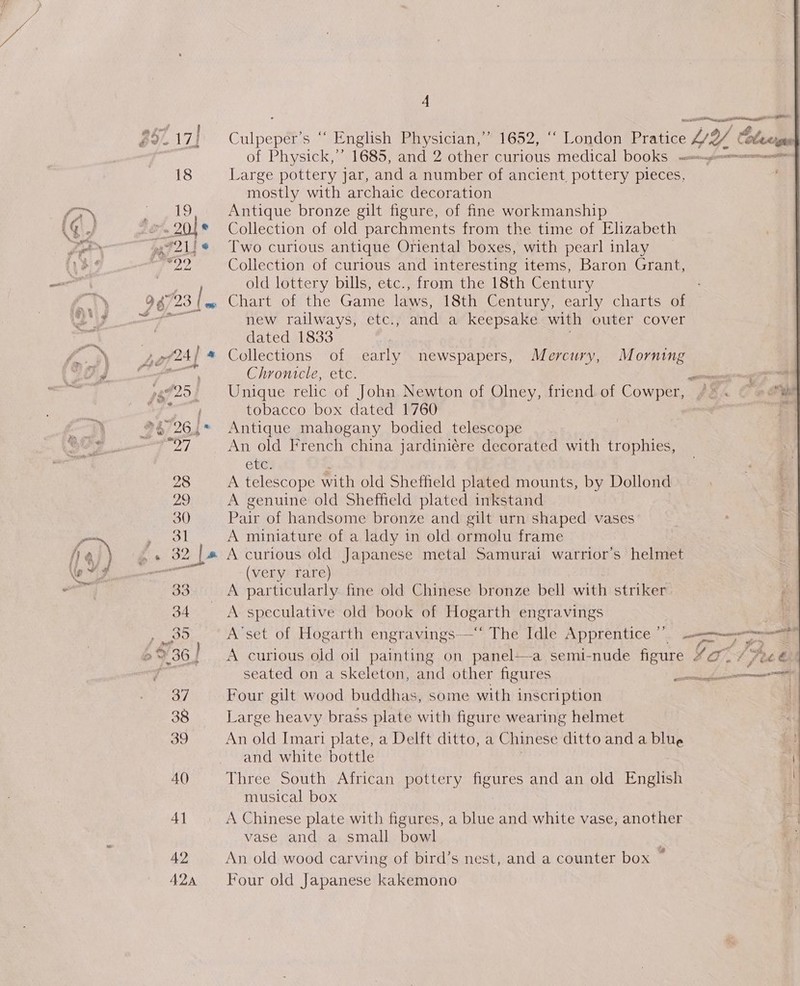 4
17 Culpeper's “ English Physician,” 1652, “ London Pratice
of Physick,” 1685, and 2 other curious medical books
18 Large pottery jar, and a number of ancient pottery pieces,
mostly with archaic decoration
19 Antique bronze gilt figure, of fine workmanship
20 Collection of old parchments from the time of Elizabeth
21 Two curious antique Oriental boxes, with pearl inlay
22 Collection of curious and interesting items, Baron Grant,
old lottery bills, etc., from the 18th Century
23 Chart of the Game laws, 18th Century, early charts of
new railways, etc., and a keepsake with outer cover
dated 1833
24 Collections of early newspapers, Mercury, Morning
Chronicle, etc.
25 Unique relic of John Newton of Olney, friend of Cowper,
tobacco box dated 1760
26 Antique mahogany bodied telescope
27 An old French china jardiniére decorated with trophies,
etc.
28 A telescope with old Sheffield plated mounts, by Dollond
29 A genuine old Sheffield plated inkstand
30 Pair of handsome bronze and gilt urn shaped vases
31 A miniature of a lady in old ormolu frame
32 A curious old Japanese metal Samurai warrior's helmet
(very rare)
33 A particularly fine old Chinese bronze bell with striker
34 A speculative old book of Hogarth engravings
35 A set of Hogarth engravings—“ The Idle Apprentice ”
36 A curious old oil painting on panel—a semi-nude figure
seated on a skeleton, and other figures
37 Four gilt wood buddhas, some with inscription
38 Large heavy brass plate with figure wearing helmet
39 An old Imari plate, a Delft ditto, a Chinese ditto and a blue
and white bottle
40 Three South African pottery figures and an old English
musical box
41 A Chinese plate with figures, a blue and white vase, another
vase and a small bowl
42 An old wood carving of bird's nest, and a counter box
42A Four old Japanese kakemono